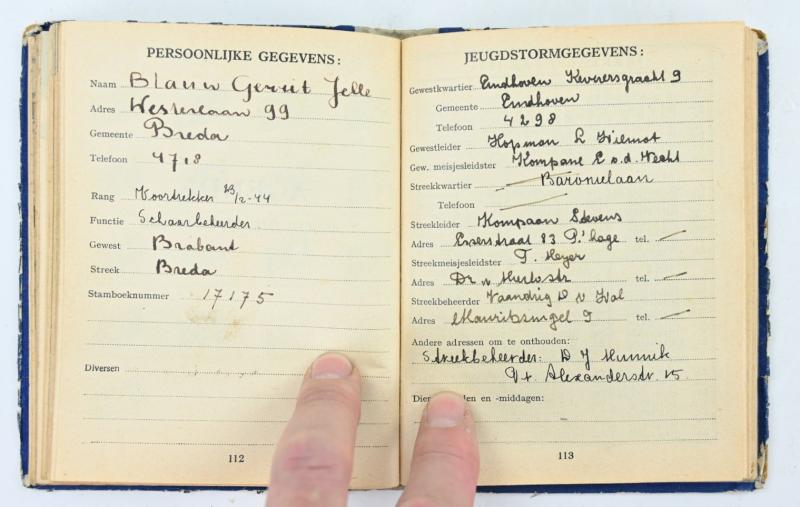 PERSOONLIJKE GEGEVENS:
Naam Blauw Gerrit Jelle
Adres Westerlaan 99
Gemeente Breda
Telefoon 4718
Rang Voortrekker 23/2-44
Functie Schaarbeheerder
Gewest Brabant
Streek Breda
Stamboeknummer 17175
Diversen
112
JEUGDSTORMGEGEVENS:
Gewestkwartier Eindhoven Keizersgracht 9
Gemeente Eindhoven
Telefoon 4298
Gewestleider Hopman L Wilmot
Gew. meisjesleidster Kompane E v.d. Wecht
Streekkwartier Baronielaan
Telefoon
Streekleider Kompaan Stevens
Adres 83 P. hage tel. —
Streekmeisjesleidster T. Meyer
Adres Dr v str tel. —
Streekbeheerder Vaandrig D v Wal
Adres Mauritssingel 9 tel. —
Andere adressen om te onthouden:
Streekbeheerder: D J Munnik
Alexanderstr. 15
en -middagen:
113